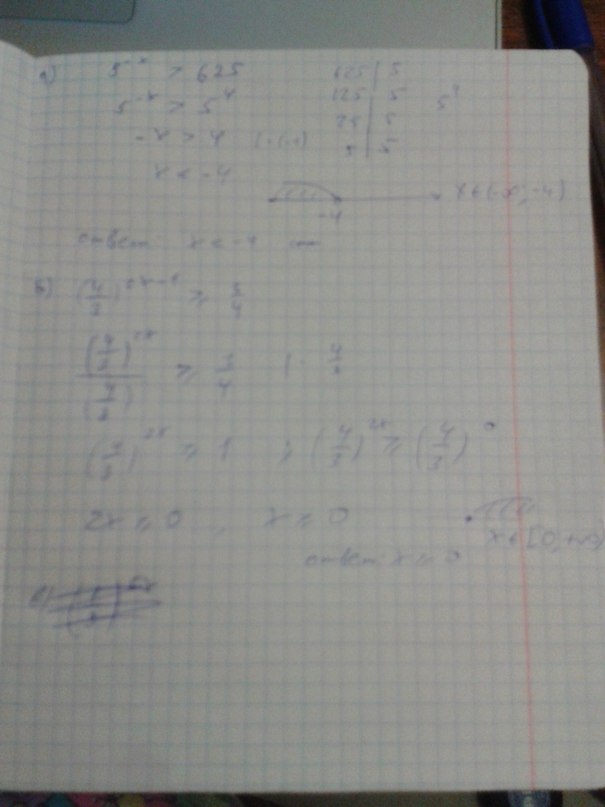 а) 5^{-x} > 625
625 | 5
125 | 5
25 | 5
5 | 5
5^{-x} > 5^4
-x > 4
x < -4
-4
x ∈ (-∞; -4)
ответ x < -4
(4/3)^{2x-1} ≥ 3/4
(4/3)^{2x} / (4/3) ≥ 3/4 | · 4/3
(4/3)^{2x} ≥ 1 ; (4/3)^{2x} ≥ (4/3)^0
2x ≥ 0 , x ≥ 0
x ∈ [0; +∞)
ответ x ≥ 0